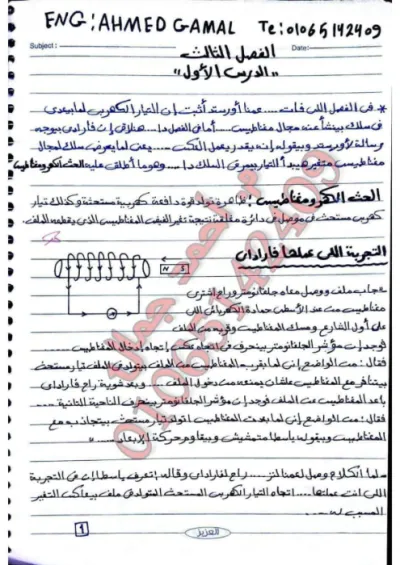 ENG: AHMED GAMAL Te: 01065142409
Subject: Date:
الفصل الثالث
"الدرس الأول"
* فى الفصل اللى فات ... عمنا أورستد أثبت إن التيار الكهربى لما يعدى
فى سلك بينشأ عنه مجال مغناطيسى ... أما فى الفصل دا ... هنلاقى إن فاراداى بيوجه
رسالة لأورستد وبيقوله إنه يقدر يعمل العكس ... يعنى لما يعرض سلك لمجال
مغناطيسى متغير هيبدأ التيار يسرى السلك دا ... وهو ما أطلق عليه الحث الكهرومغناطيسى
الحث الكهرومغناطيسى: ظاهرة تولد قوة دافعة كهربية مستحثة وكذلك تيار
كهربى مستحث فى موصل فى دائرة مغلقة نتيجة تغير الفيض المغناطيسى الذى يقطعه الملف.
التجربة اللى عملها فاراداى
N S
جاب ملف ووصل معاه جلفانومتر وراح اشترى
مغناطيس من عند الأسطى حمادة الكهربائى اللى
على أول الشارع ومسك المغناطيس وقربه من الملف
فوجد إن مؤشر الجلفانومتر بينحرف فى اتجاه عكس إتجاه إدخال المغناطيس
فقال: من الواضح إنى لما بقرب المغناطيس من الملف بيتولد فى الملف تيار مستحث
بيتنافر مع المغناطيس علشان يمنعه من دخول الملف ... وبعد شوية راح فاراداى
باعد المغناطيس عن الملف فوجد إن مؤشر الجلفانومتر بينحرف الناحية التانية
فقال: من الواضح إنى لما بعدت المغناطيس اتولد تيار مستحث بيتجاذب مع
المغناطيس وبيقوله ياسطا متمشيش وبيقاوم حركة الإبعاد
- لما الكلام وصل لعمنا لنز ... راح لفاراداى وقاله: تعرف ياسطا إن فى التجربة
اللى انت عملتها ... اتجاه التيار الكهربى المستحث المتولد فى ملف بيعاكس التغير
المسبب له
1
العزيز
م/ أحمد جمال
01065142409